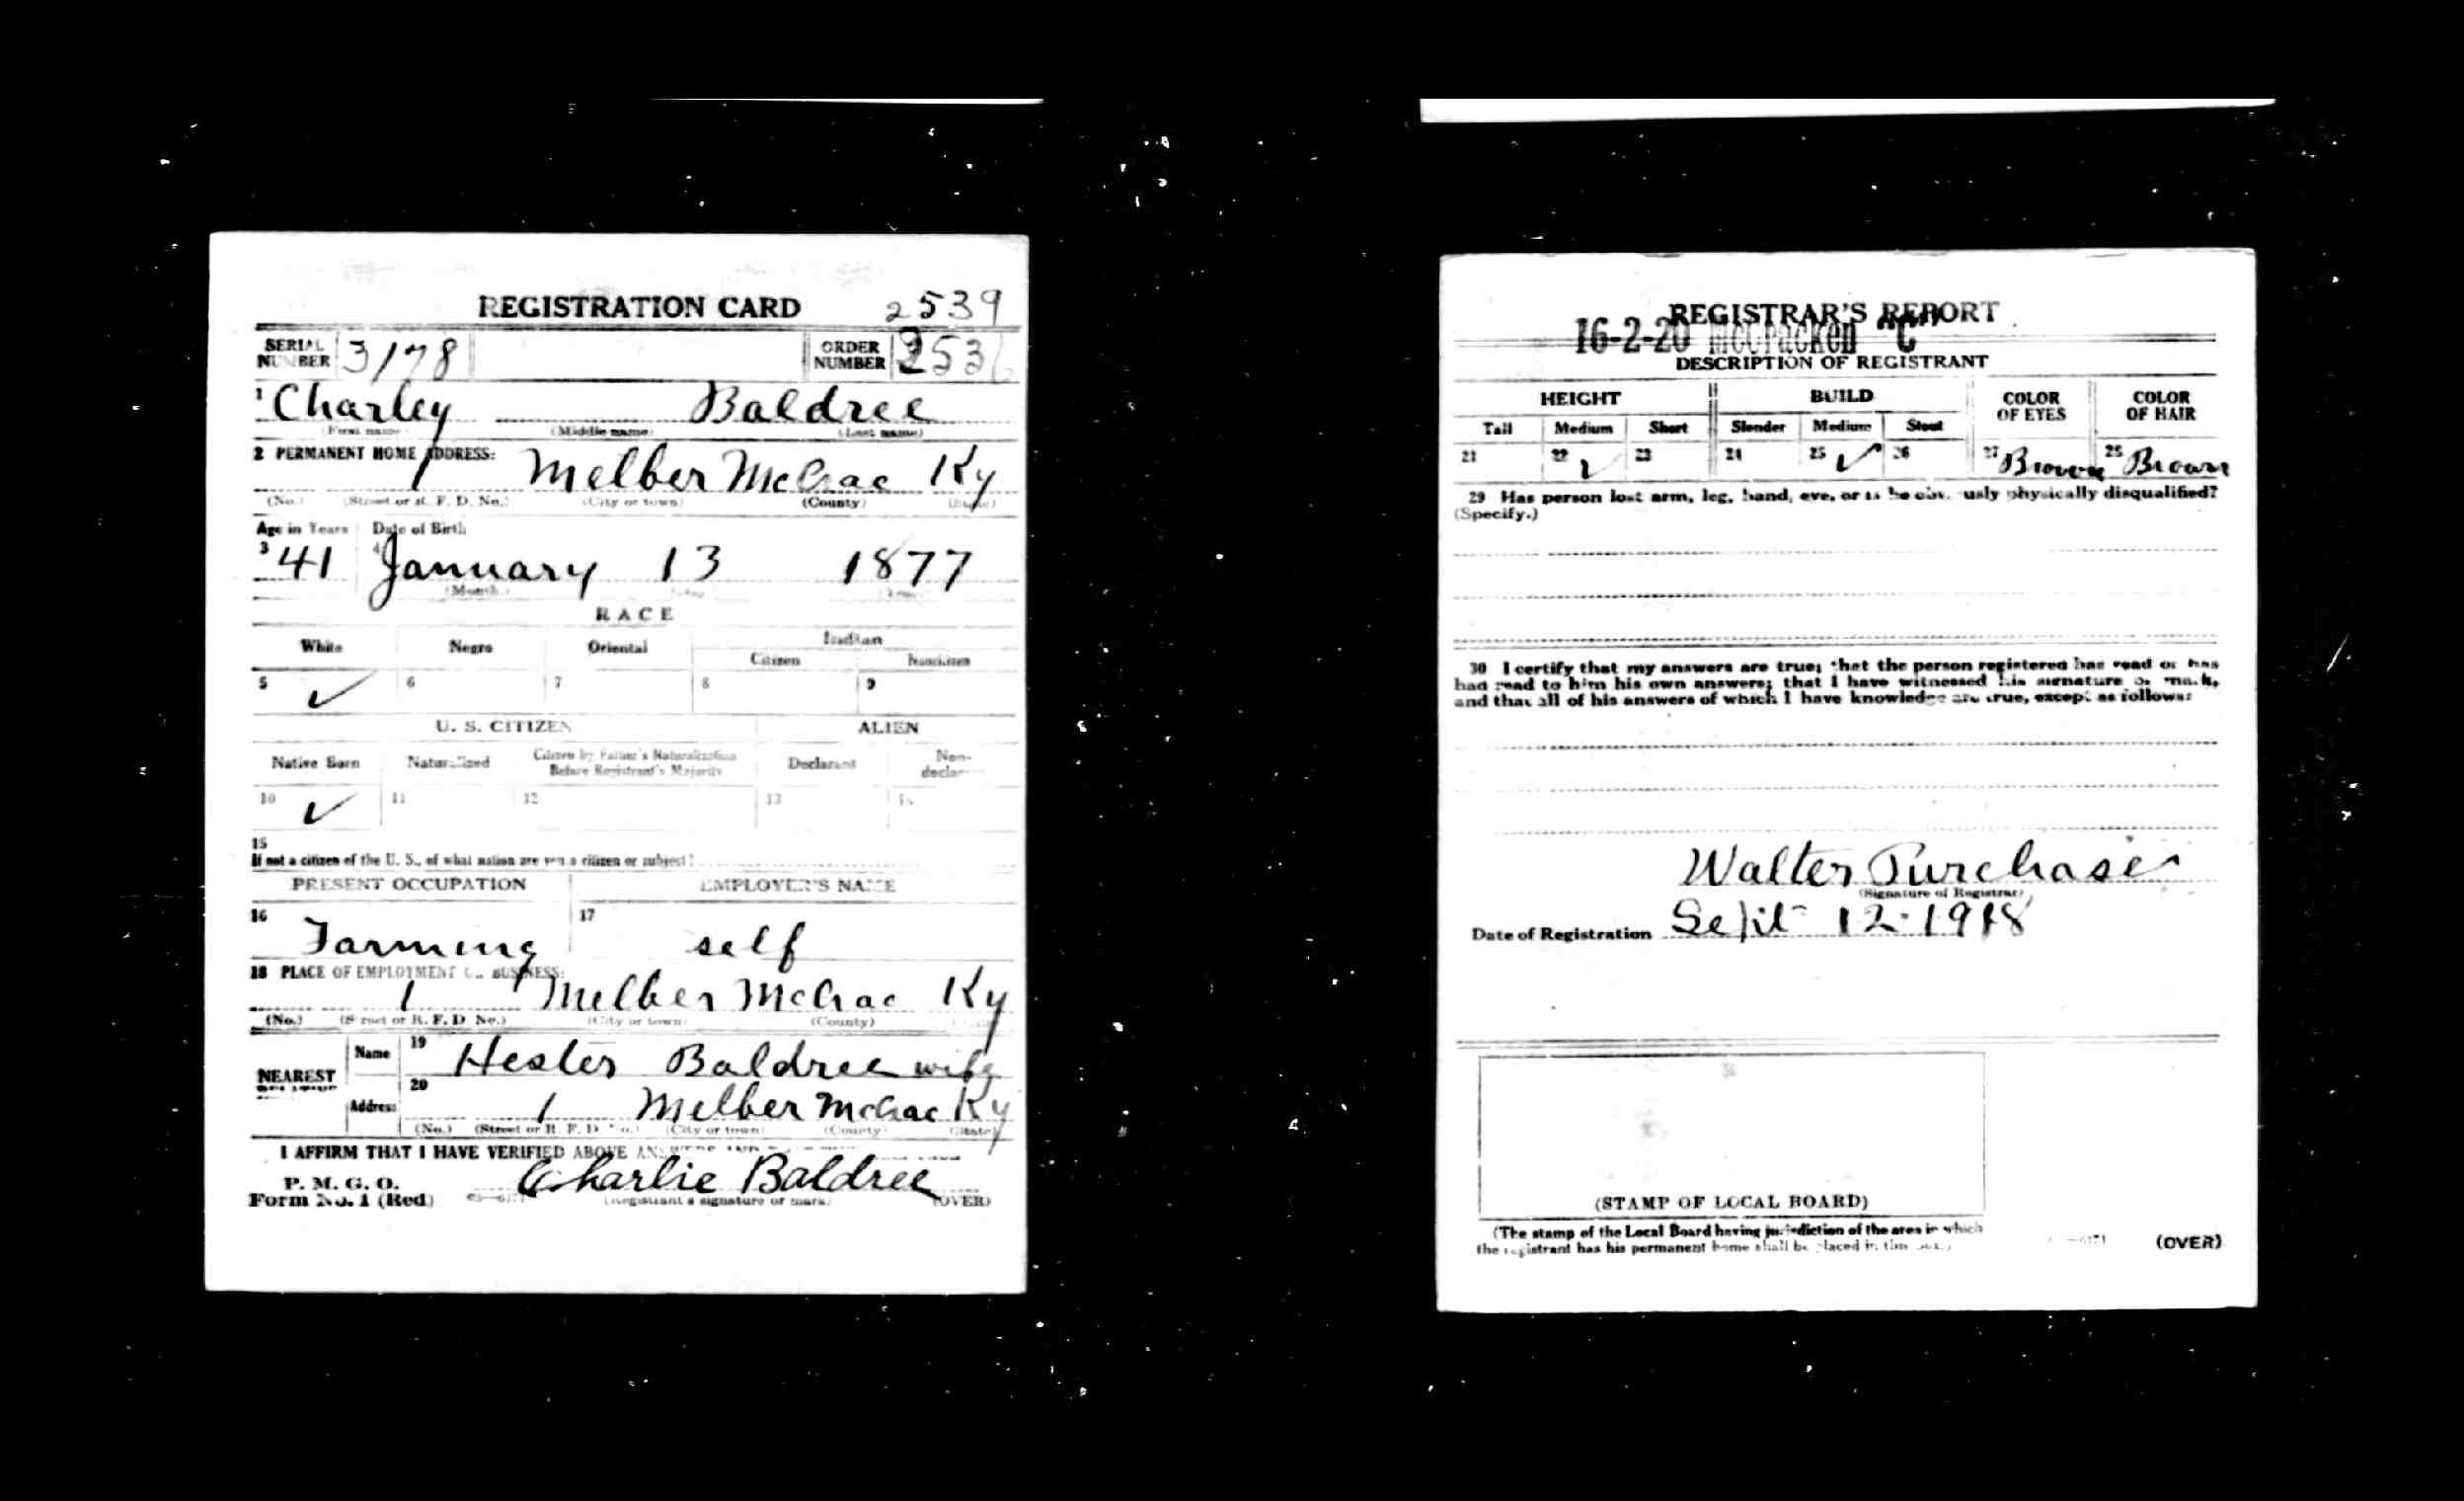 REGISTRATION CARD 2539
SERIAL NUMBER 3178 ORDER NUMBER 253
1 Charley Baldree
(First name) (Middle name) (Last name)
2 PERMANENT HOME ADDRESS:
1 Melber McCrac Ky
(No.) (Street or R. F. D. No.) (City or town) (County) (State)
Age in Years Date of Birth
3 41 4 January 13 1877
(Month.) (Day.) (Year.)
RACE
White Negro Oriental Indian
Citizen Noncitizen
5 ✓ 6 7 8 9
U. S. CITIZEN ALIEN
Native Born Naturalized Citizen by Father's Naturalization Before Registrant's Majority Declarant Non-declarant
10 ✓ 11 12 13 14
15
If not a citizen of the U. S., of what nation are you a citizen or subject?
PRESENT OCCUPATION EMPLOYER'S NAME
16 Farming 17 self
18 PLACE OF EMPLOYMENT OR BUSINESS:
1 Melber McCrac Ky
(No.) (Street or R. F. D. No.) (City or town) (County) (State)
NEAREST RELATIVE Name 19 Hester Baldree wife
Address 20 1 Melber McCrac Ky
(No.) (Street or R. F. D. No.) (City or town) (County) (State)
I AFFIRM THAT I HAVE VERIFIED ABOVE ANSWERS AND
P. M. G. O.
Form No. 1 (Red) Charlie Baldree
(Registrant's signature or mark) (OVER)
REGISTRAR'S REPORT
16-2-20 McCracken "C"
DESCRIPTION OF REGISTRANT
HEIGHT BUILD COLOR OF EYES COLOR OF HAIR
Tall Medium Short Slender Medium Stout
21 22 ✓ 23 24 25 ✓ 26 27 Brown 28 Brown
29 Has person lost arm, leg, hand, eye, or is he obviously physically disqualified?
(Specify.)
30 I certify that my answers are true; that the person registered has read or has
had read to him his own answers; that I have witnessed his signature or mark,
and that all of his answers of which I have knowledge are true, except as follows:
Walter Purchase
(Signature of Registrar)
Date of Registration Sept 12-1918
(STAMP OF LOCAL BOARD)
(The stamp of the Local Board having jurisdiction of the area in which
the registrant has his permanent home shall be placed in this box.)
(OVER)